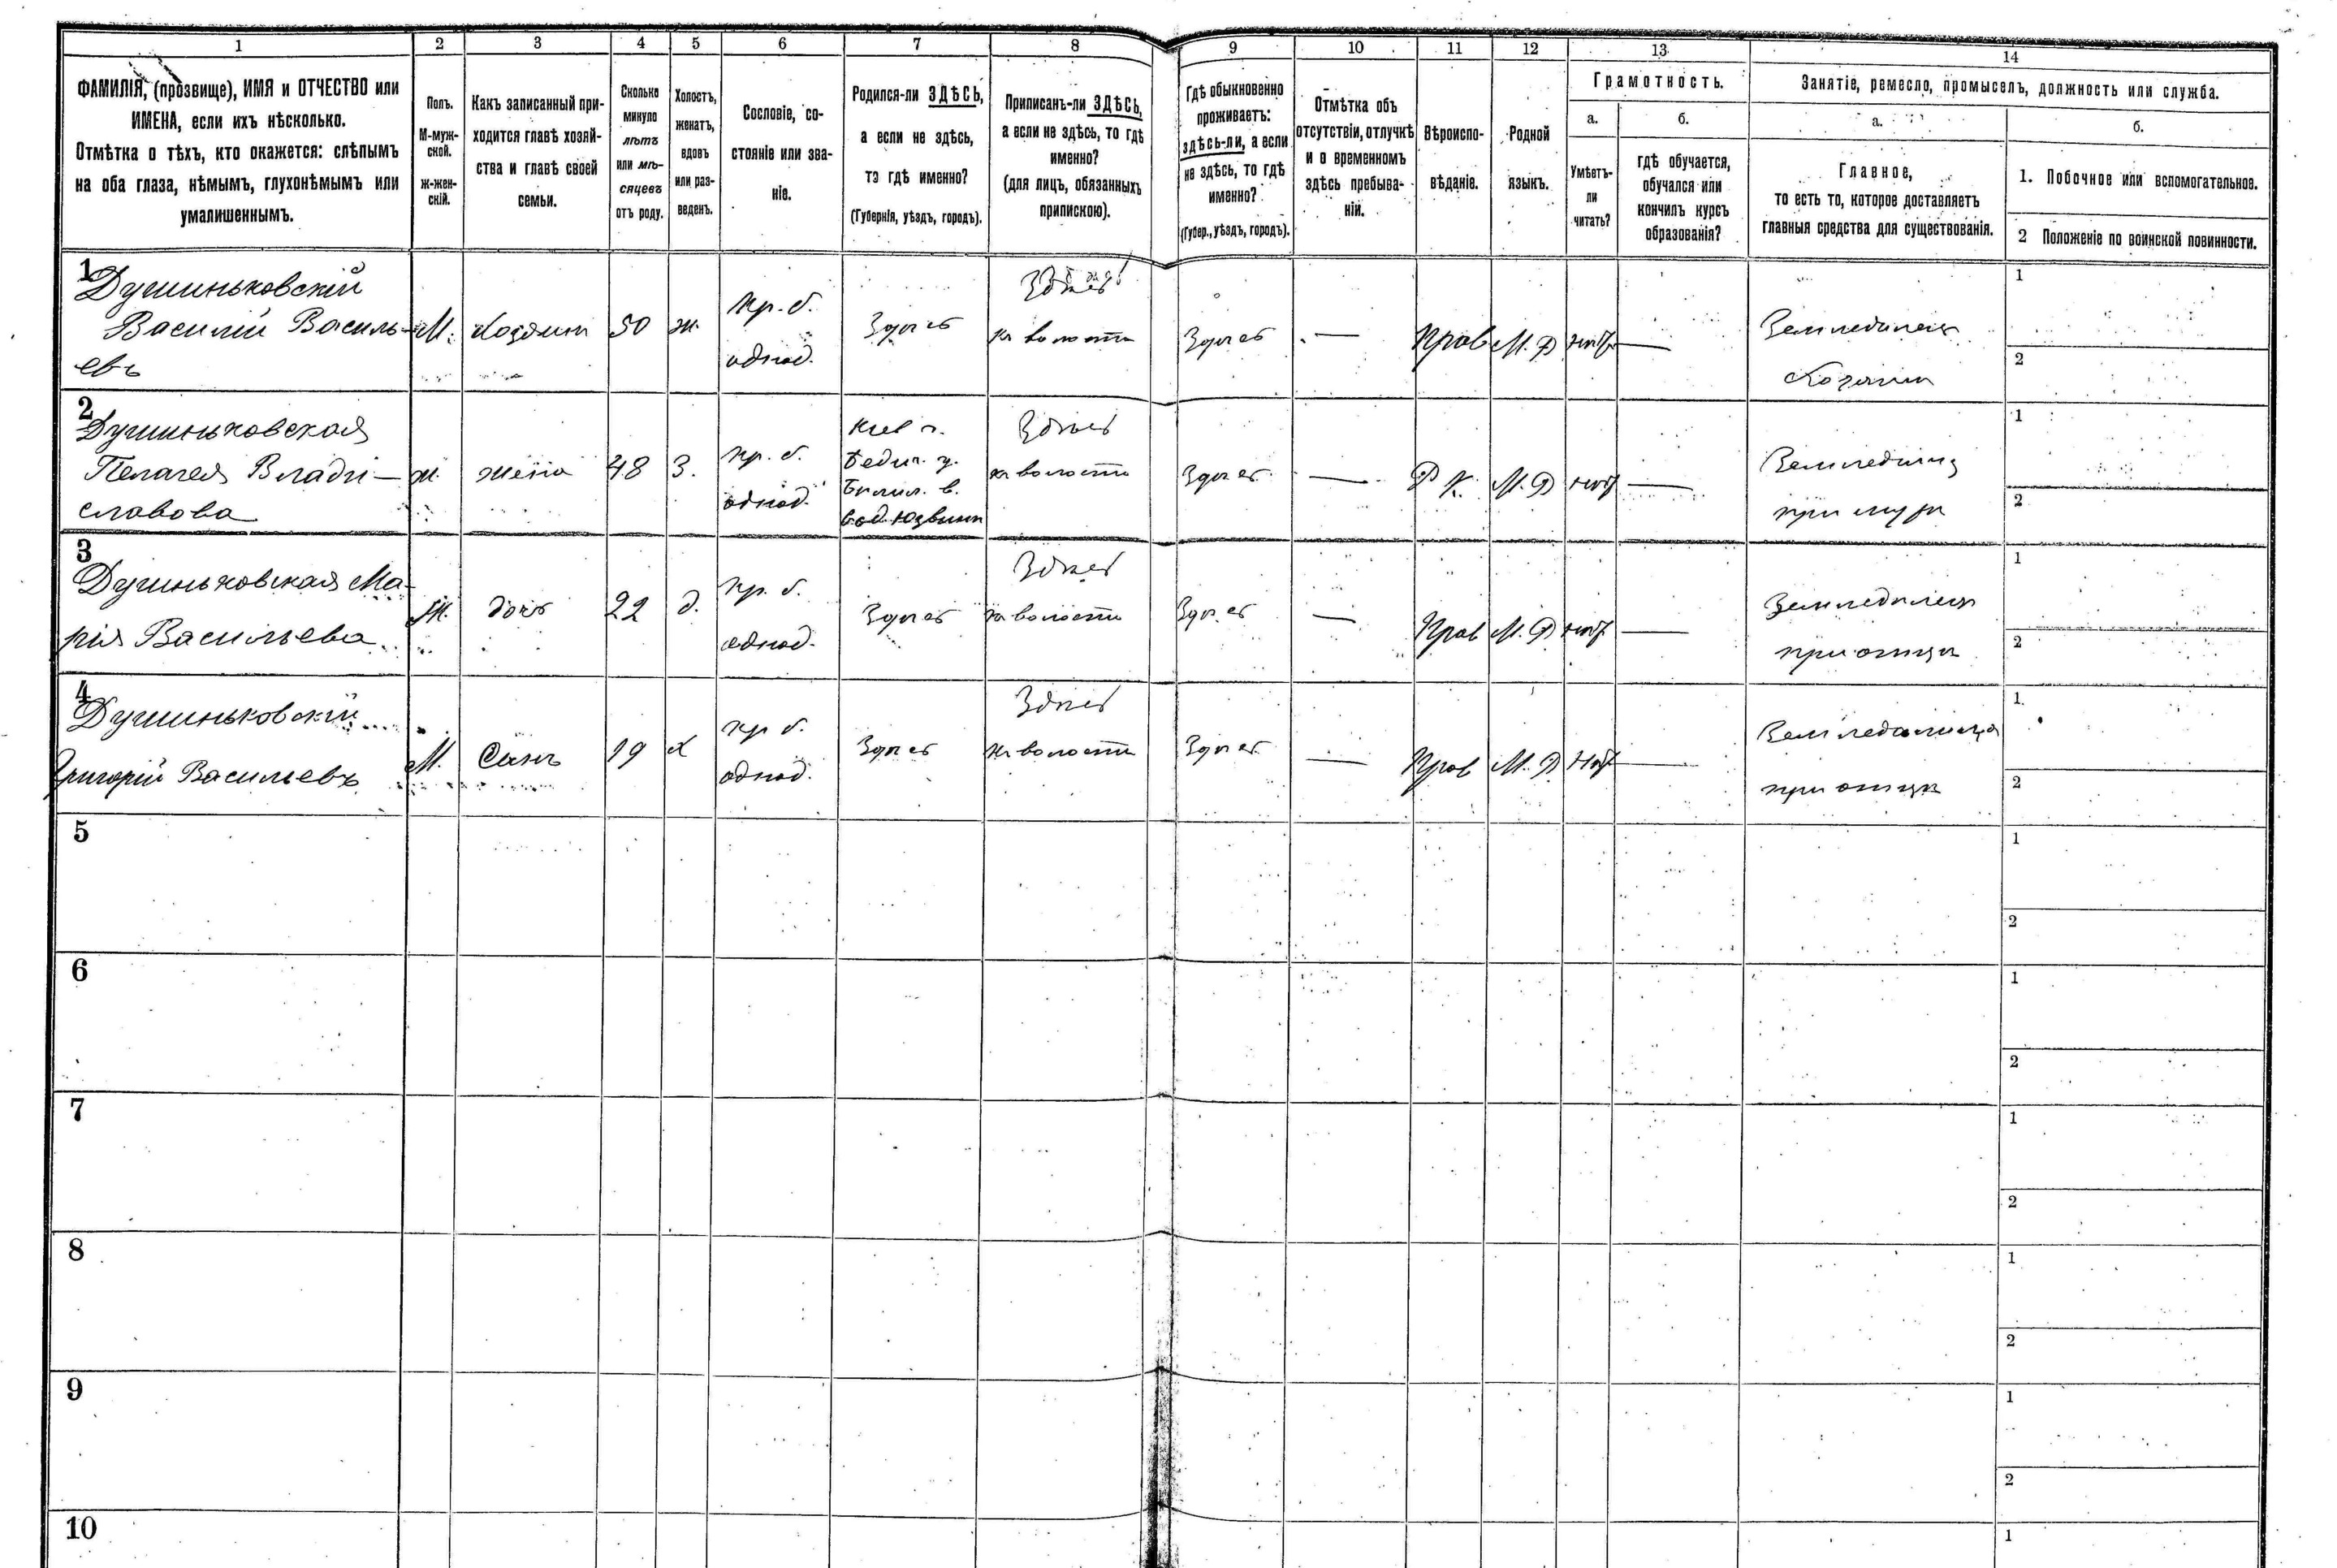 1 2 3 4 5 6 7 8 9 10 11 12 13 14
ФАМИЛІЯ, (прозвище), ИМЯ и ОТЧЕСТВО или
ИМЕНА, если ихъ нѣсколько.
Отмѣтка о тѣхъ, кто окажется: слѣпымъ
на оба глаза, нѣмымъ, глухонѣмымъ или
умалишеннымъ.
Полъ.
М-муж-
ской.
ж-жен-
скій.
Какъ записанный при-
ходится главѣ хозяй-
ства и главѣ своей
семьи.
Сколько
минуло
лѣтъ
или мѣ-
сяцевъ
отъ роду.
Холостъ,
женатъ,
вдовъ
или раз-
веденъ.
Сословіе, со-
стояніе или зва-
ніе.
Родился-ли ЗДѢСЬ,
а если не здѣсь,
то гдѣ именно?
(Губернія, уѣздъ, городъ).
Приписанъ-ли ЗДѢСЬ,
а если не здѣсь, то гдѣ
именно?
(для лицъ, обязанныхъ
припискою).
Гдѣ обыкновенно
проживаетъ:
здѣсь-ли, а если
не здѣсь, то гдѣ
именно?
(Губер., уѣздъ, городъ).
Отмѣтка объ
отсутствіи, отлучкѣ
и о временномъ
здѣсь пребыва-
ніи.
Вѣроиспо-
вѣданіе.
Родной
языкъ.
Грамотность.
а.
Умѣетъ-
ли
читать?
б.
гдѣ обучается,
обучался или
кончилъ курсъ
образованія?
Занятіе, ремесло, промыселъ, должность или служба.
а.
Главное,
то есть то, которое доставляетъ
главныя средства для существованія.
б.
1. Побочное или вспомогательное.
2 Положеніе по воинской повинности.
1
Душиньковскій
Василій Василь-
евъ
М.
Хозяин
50
ж.
кр. б.
однод.
Здѣсь
Здѣсь
въ волости
Здѣсь
—
Прав
М. Р
нѣт
—
Земледелец
Хозяин
1
2
2
Душиньковская
Пелагея Влади-
славова
ж.
жена
48
З.
кр. б.
однод.
Киев г.
у.
в.
Здѣсь
въ волости
Здѣсь
—
Р К.
М. Р
нѣт
—
при муж
1
2
3
Душиньковская Ма-
рія Васильева
Ж.
дочь
22
д.
кр. б.
однод.
Здѣсь
Здѣсь
въ волости
Здѣсь
—
Прав
М. Р
нѣт
—
Земледелец
при отцѣ
1
2
4
Душиньковскій
Григорій Васильевъ
М.
Сынъ
19
х
кр б.
однод.
Здѣсь
Здѣсь
въ волости
Здѣсь
—
Прав
М. Р
нѣт
—
при отцѣ
1.
2
5
1
2
6
1
2
7
1
2
8
1
2
9
1
2
10
1